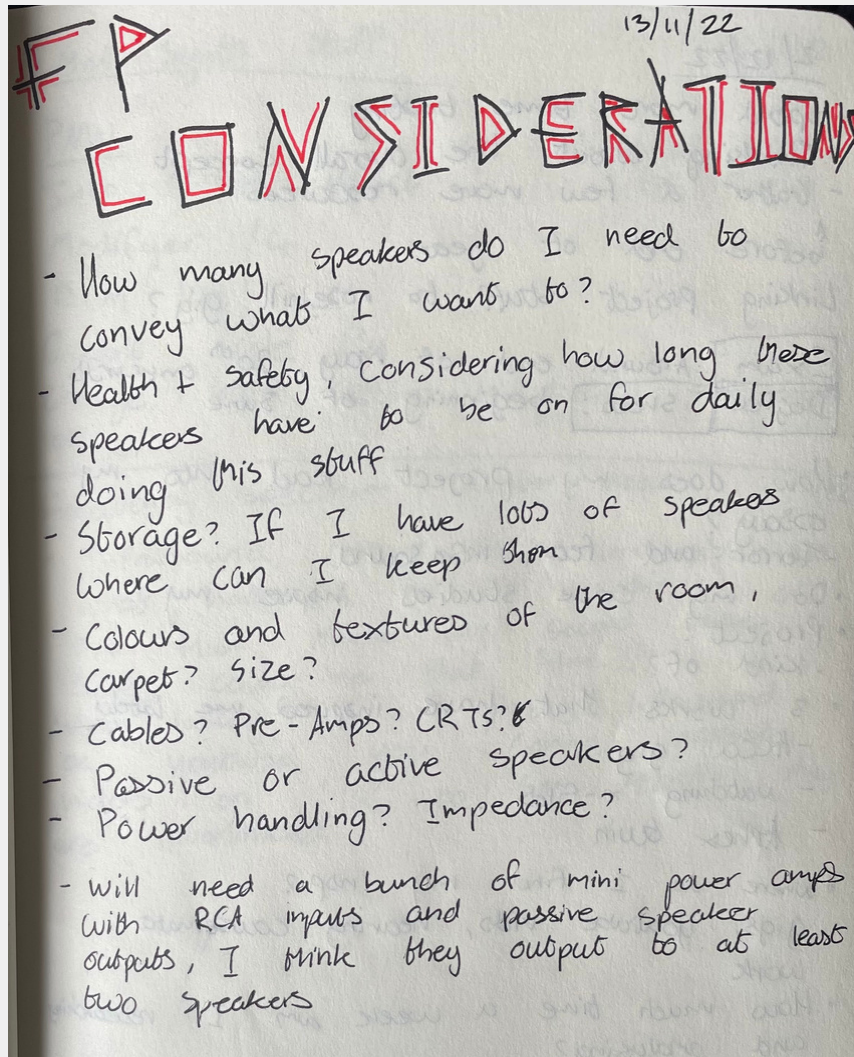 13/11/22
FP
CONSIDERATIONS
- How many speakers do I need to
convey what I want to?
- Health + safety, considering how long these
speakers have to be on for daily
doing this stuff
- Storage? If I have lots of speakers
where can I keep them
- Colours and textures of the room,
carpet? size?
- Cables? Pre-Amps? CRTS?
- Passive or active speakers?
- Power handling? Impedance?
- will need a bunch of mini power amps
with RCA inputs and passive speaker
outputs, I think they output to at least
two speakers